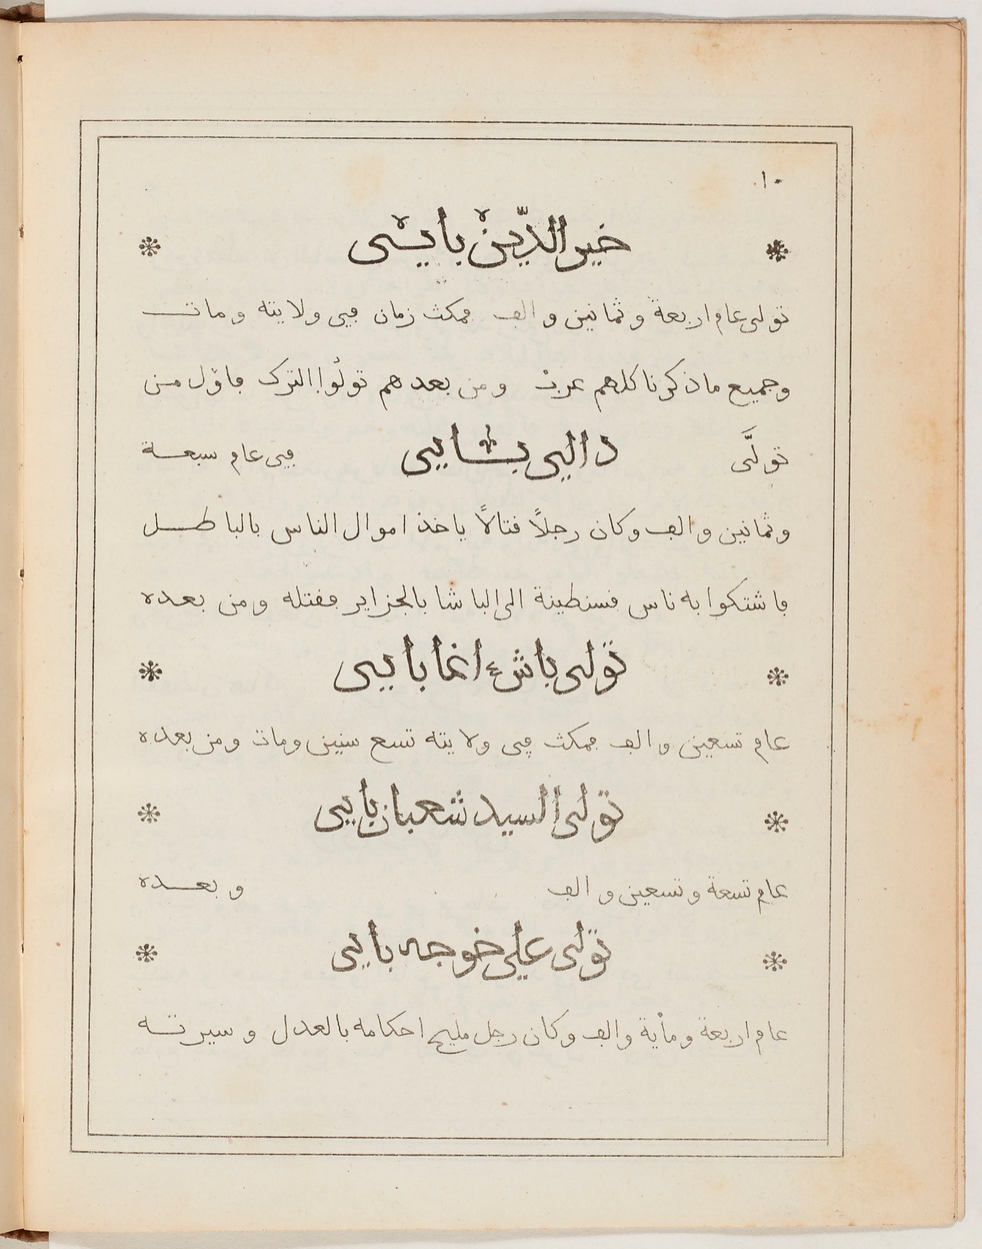 ١٠
خير الدّين باي
تولى عام اربعة وثمانين والف فمكث زمان في ولايته ومات
وجميع ما ذكرنا كلهم عرب ومن بعدهم تولّوا الترك فاوّل من
تولَّى دالي باي في عام سبعة
وثمانين والف وكان رجلاً قتالاً ياخذ اموال الناس بالباطل
فاشتكوا به ناس قسنطينة الى الباشا بالجزاير فقتله ومن بعده
تولى باش اغا باي
عام تسعين والف فمكث في ولايته تسع سنين ومات ومن بعده
تولى السيد شعبان باي
عام تسعة وتسعين والف وبعده
تولى علي خوجه باي
عام اربعة ومأية والف وكان رجل مليح احكامه بالعدل وسيرته